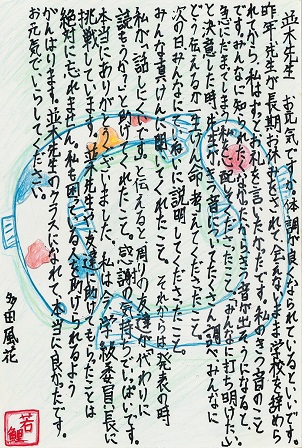 並木先生　お元気ですか。体調が良くなられているといいです。
昨年、先生が長期お休みをされて会えないまま学校を辞めら
れてから、私はずっとお礼を言いたかったです。私のきつ音のこと
です。みんなに知られたくなかったし、きつ音が出そうになると、
急にだまってしまう私をご配
と決意した時、先生がきつ音について
どう伝えるか一生けん命考えてくださったこと。
次の日みんなにていねいに説明してくださったこと。
みんな真けんに聞いてくれたこと。それからは発表の時
私が「話しにくい」と伝えると周りの友達が代わりに
読もうか？」と助けてくれたこと。感謝の気持ちでいっぱいです。
本当にありがとうございました。私は今、学級委員長に
挑戦しています。並木先生や友達に助けてもらったことは
絶対に忘れません。私も困っている人を助けられるよう
がんばります。並木先生のクラスになれて本当に良かったです。
お元気でいらしてください。
多田風花
若鯉